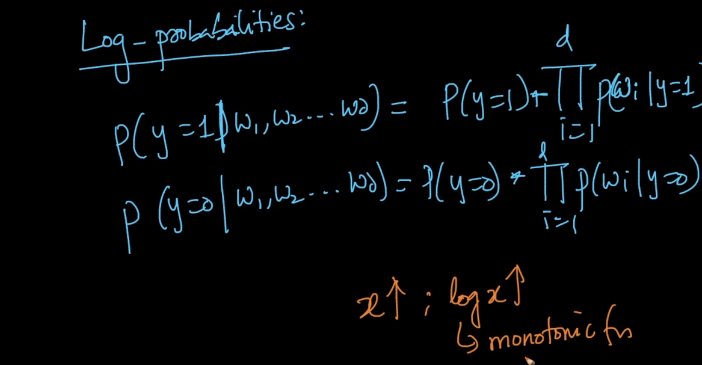 Log-probabilities:
P(y=1|w₁,w₂...w_d) = P(y=1) * ∏_{i=1}^{d} P(wᵢ|y=1)
P(y=0|w₁,w₂...w_d) = P(y=0) * ∏_{i=1}^{d} P(wᵢ|y=0)
x↑ ; log x↑
↳ monotonic fn